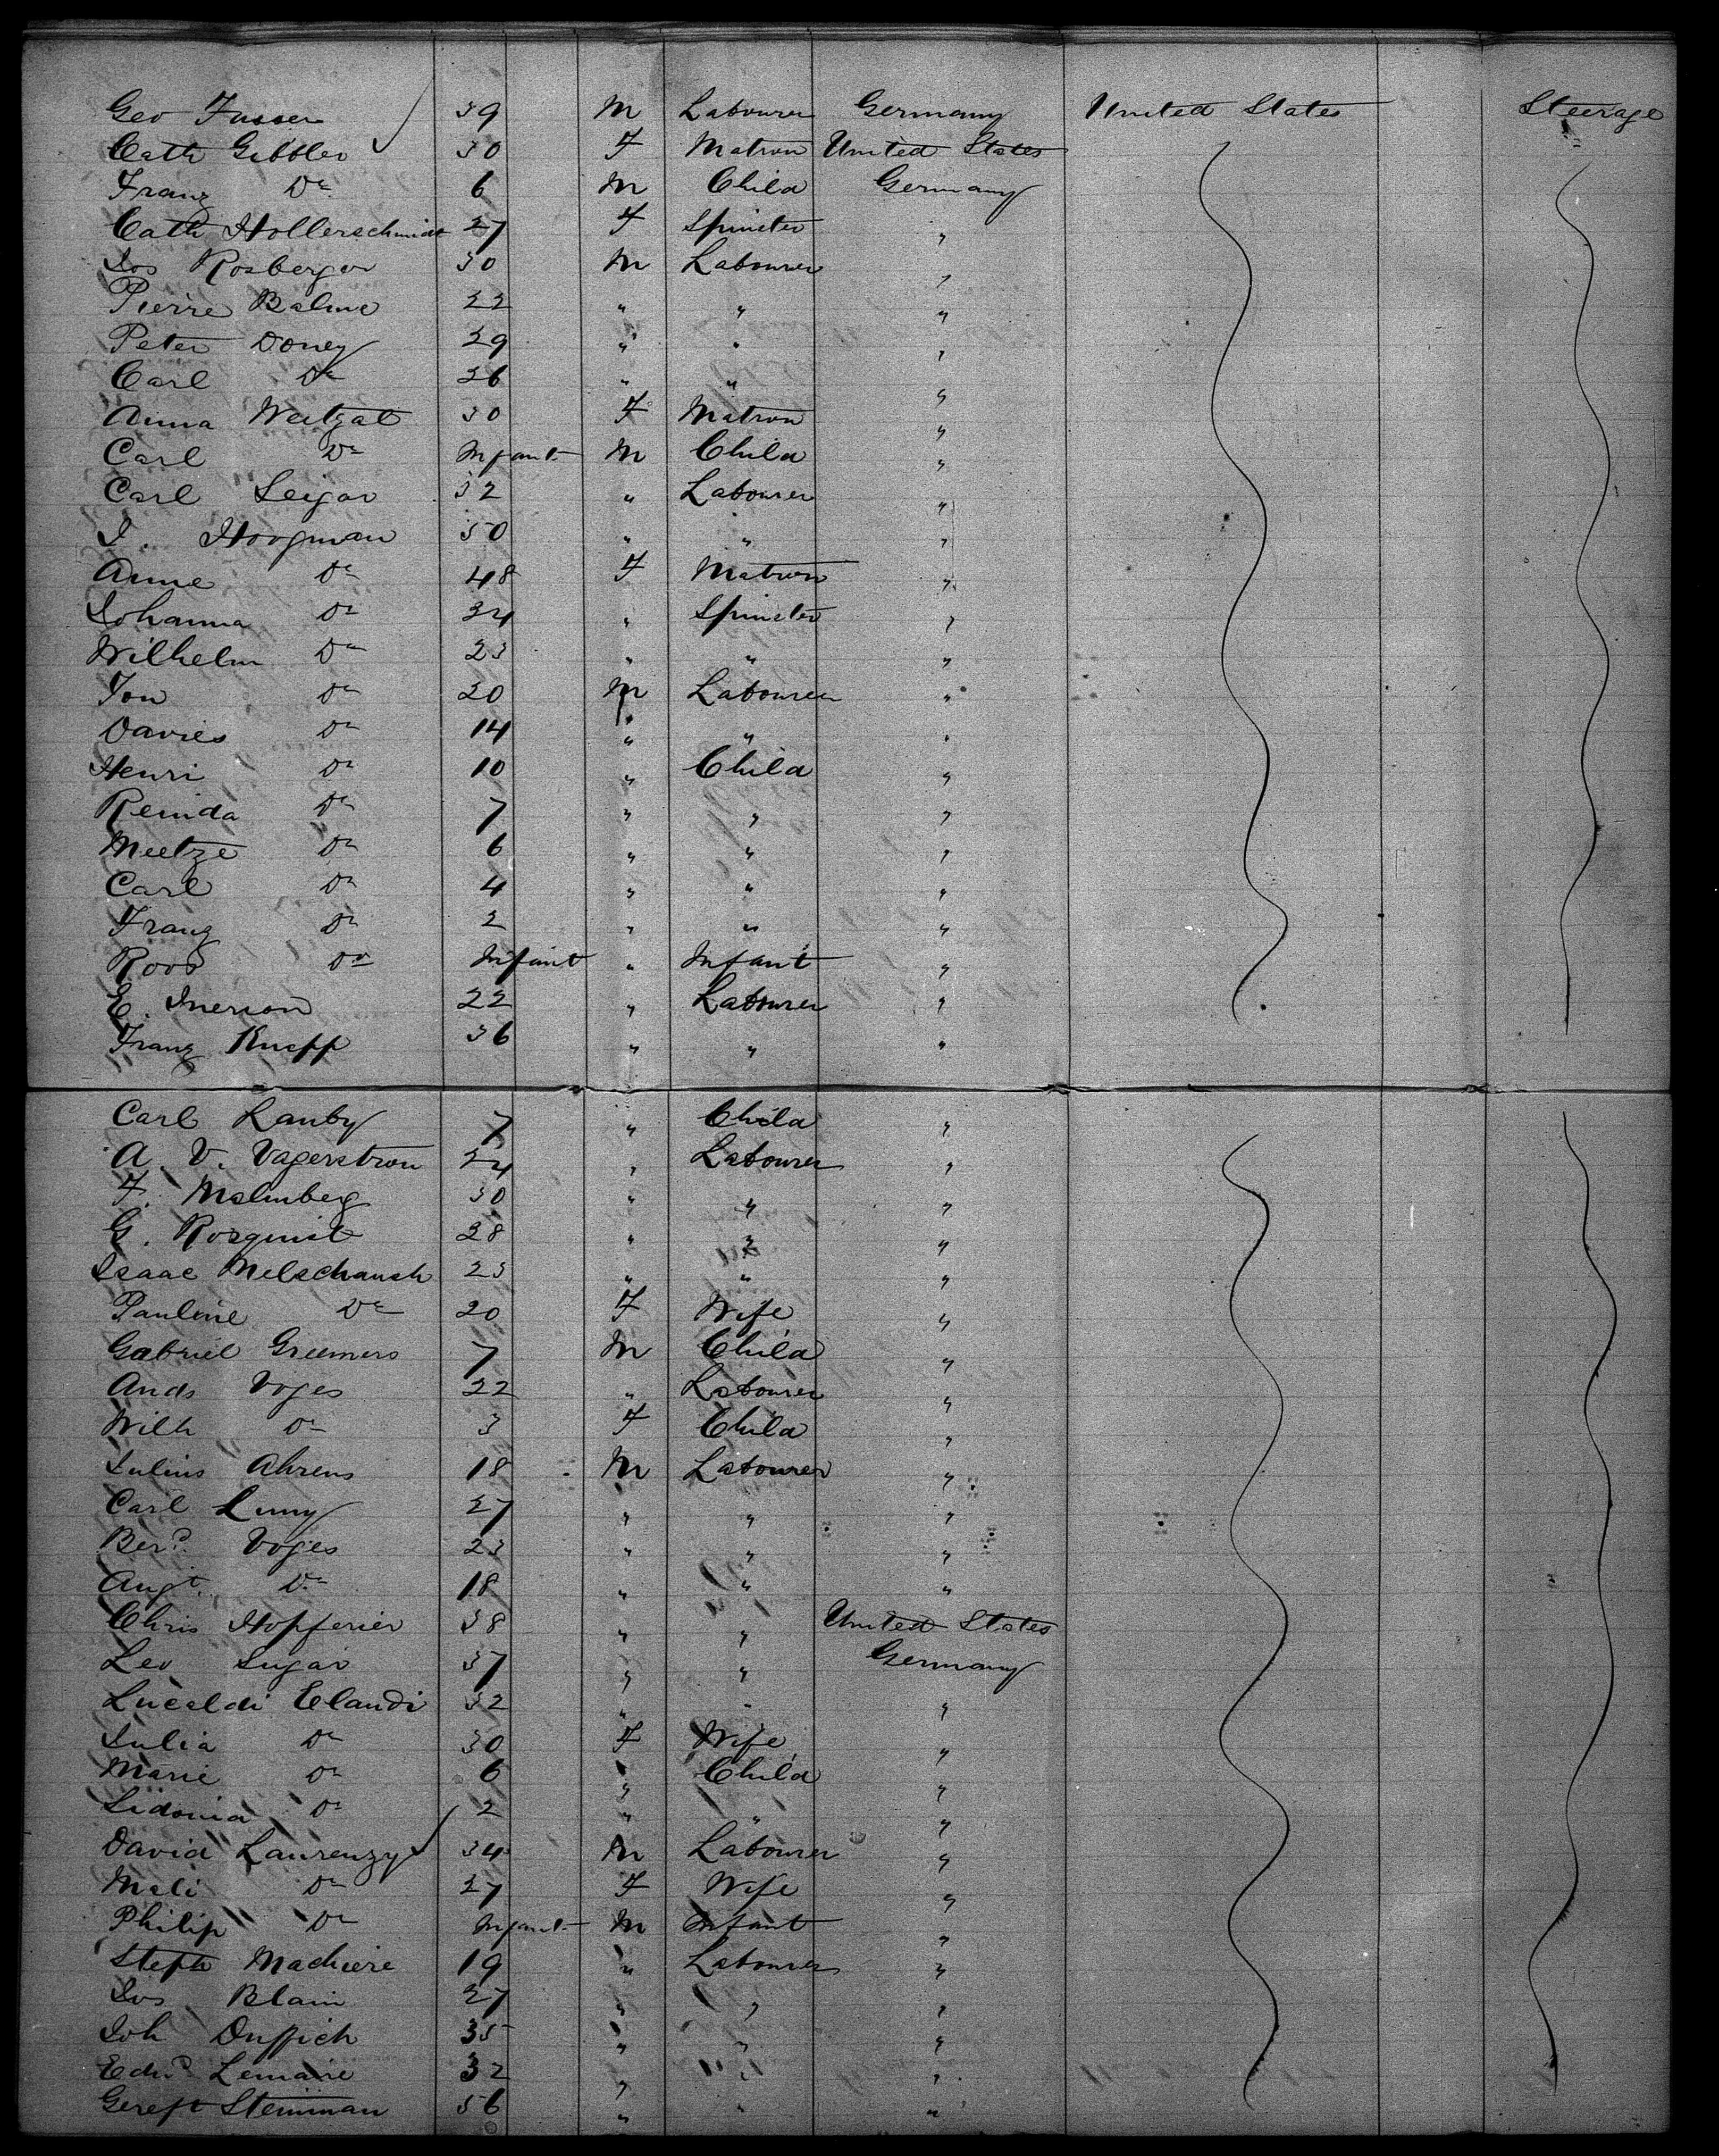 Geo Fusser 39 M Labourer Germany United States Steerage
Cath Gibbler 30 F Matron United States
Franz Do 6 M Child Germany
Cath Hollerschmidt 27 F Spinster "
Jos Rosberger 30 M Labourer "
Pierre Balme 22 " " "
Peter Doney 29 " " "
Carl Do 26 " " "
Anna Weitzat 30 F Matron "
Carl Do Infant M Child "
Carl Seigar 32 " Labourer "
J. Hoogman 50 " " "
Anne Do 48 F Matron "
Johanna Do 24 " Spinster "
Wilhelm Do 23 " " "
Jon Do 20 M Labourer "
Davies Do 14 " " "
Henri Do 10 " Child "
Reinda Do 7 " " "
Meetze Do 6 " " "
Carl Do 4 " " "
Franz Do 2 " " "
Roos Do Infant " Infant "
E. Inerson 22 " Labourer "
Franz Knepp 36 " " "
Carl Lanby 7 " Child "
A. V. Vagerstrom 24 " Labourer "
F. Malmberg 30 " " "
G. Rosquist 28 " " "
Isaac Melschansh 23 " " "
Pauline Do 20 F Wife "
Gabriel Greemers 7 M Child "
Ands Voges 22 " Labourer "
Wilh Do 3 F Child "
Julius Ahrens 18 M Labourer "
Carl Luny 27 " " "
Berd Voges 23 " " "
Augt. Do 18 " " "
Chris Hopferier 38 " " United States
Leo Sugar 37 " " Germany
Lucaldi Claudi 32 " " "
Julia Do 30 F Wife "
Marie Do 6 " Child "
Sidonia Do 2 " " "
David Laurenzy 34 M Labourer "
Mali Do 27 F Wife "
Philip Do Infant M Infant "
Steph Machiere 19 " Labourer "
Jos Blain 27 " " "
Joh Duffich 35 " " "
Edwd Lemaire 32 " " "
Gereft Steinman 56 " " "